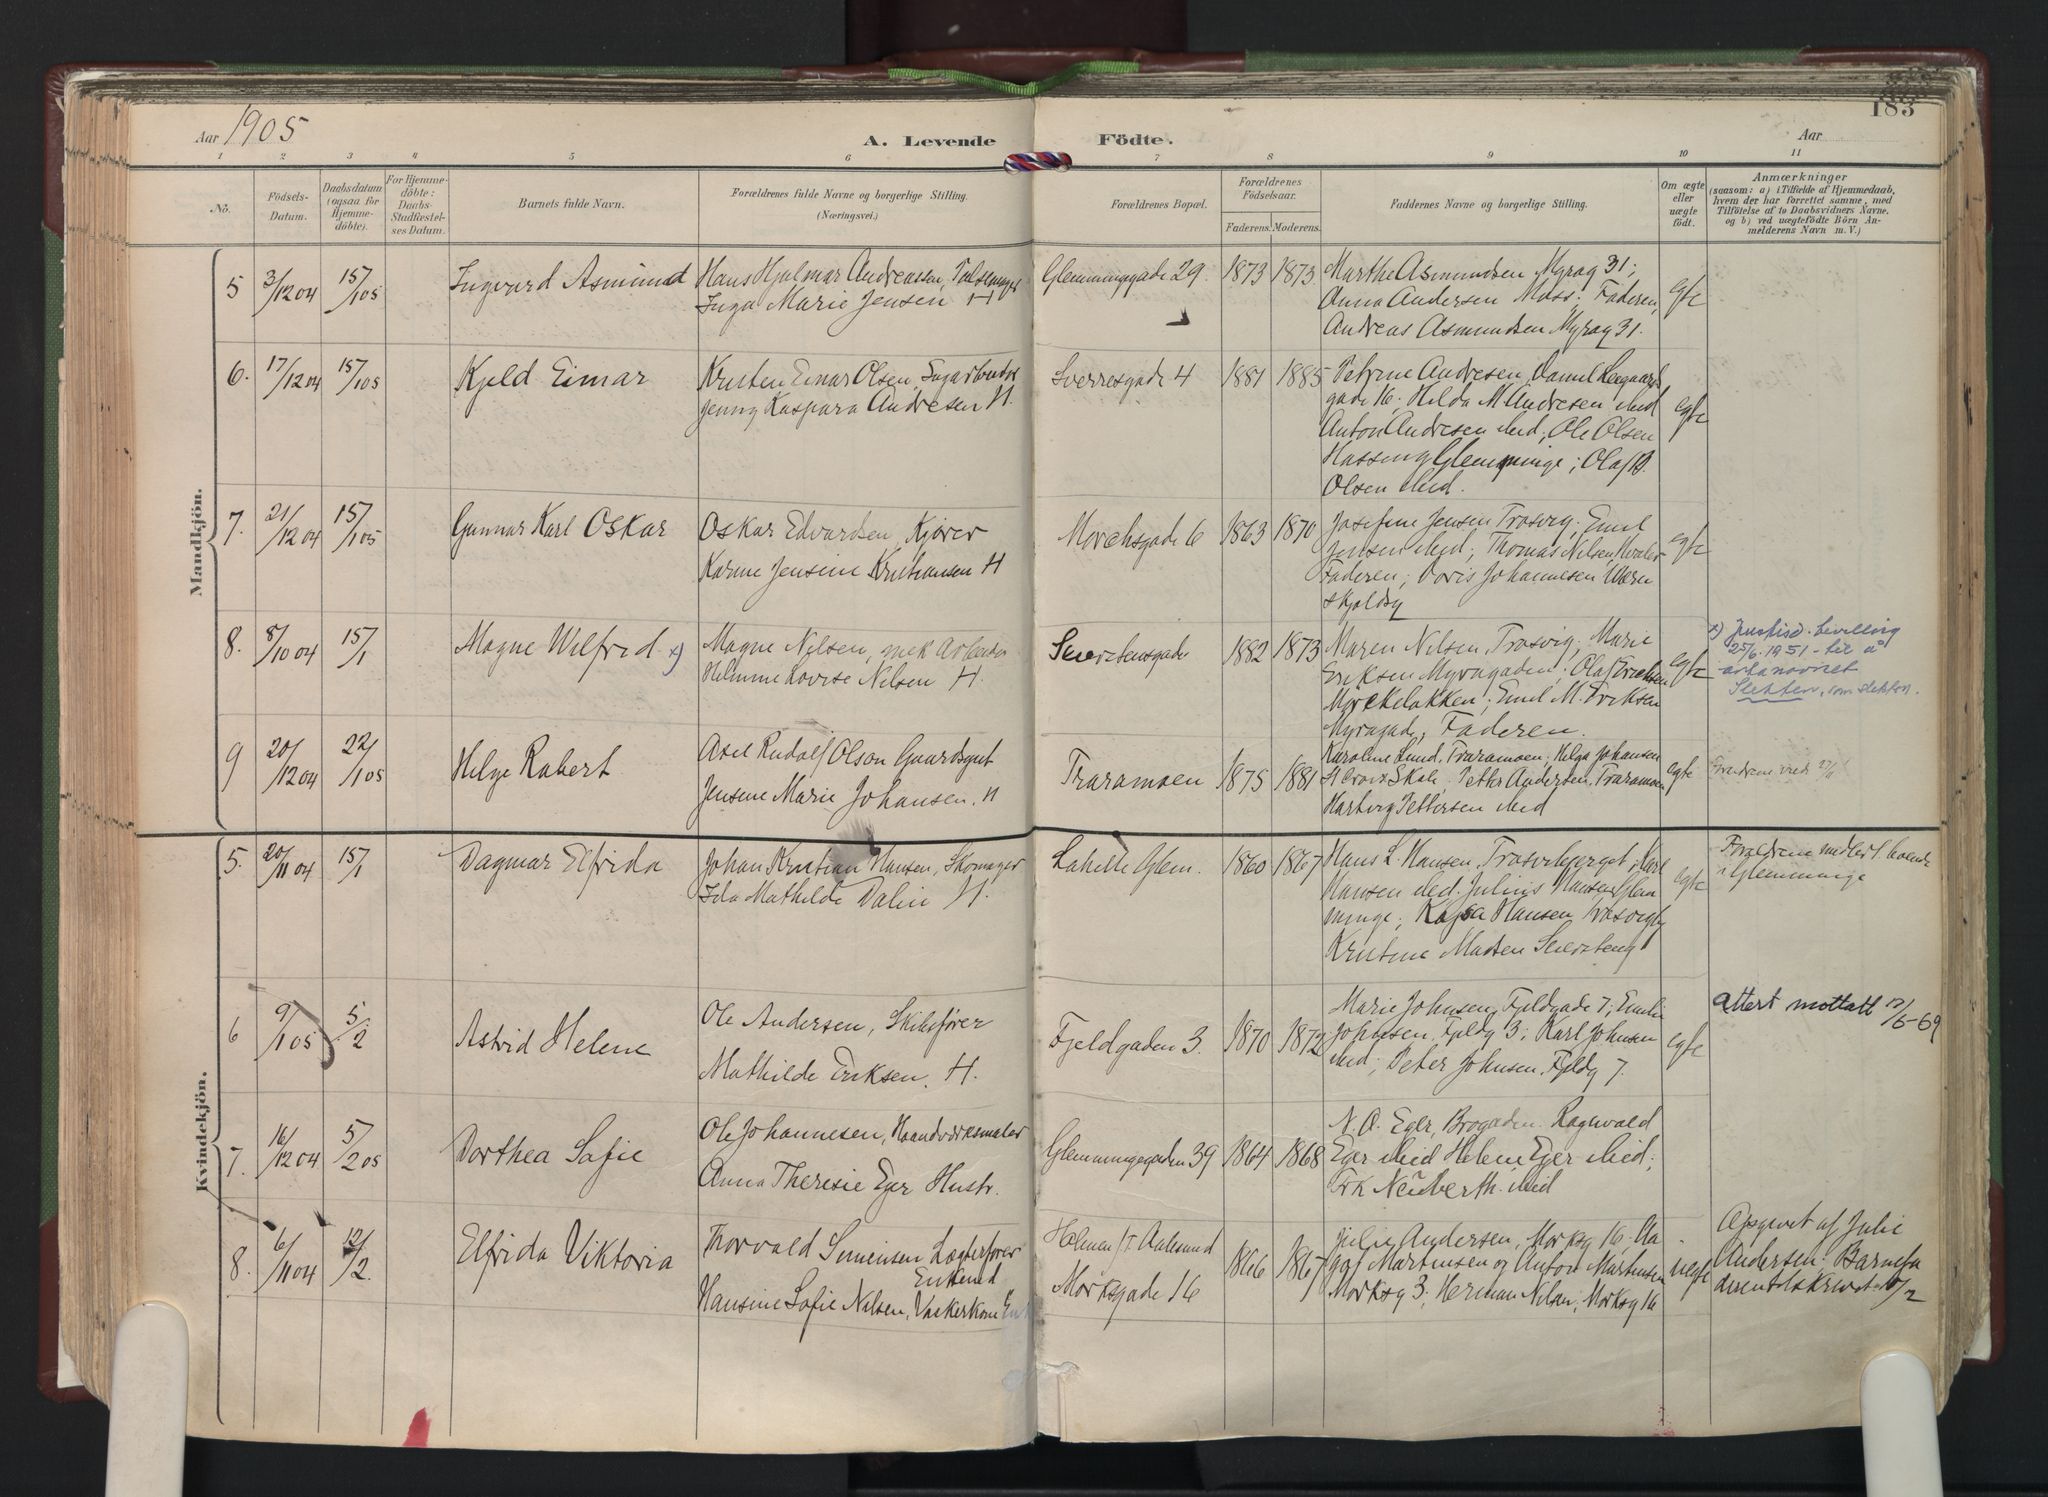 183
Aar 1905 A. Levende Födte. Aar
1 2 3 4 5 6 7 8 9 10 11
No.
Födsels-
Datum.
Daabsdatum
(ogsaa for
Hjemme-
döbte).
For Hjemme-
döbte:
Daabs-
Stadfæstel-
ses Datum.
Barnets fulde Navn.
Forældrenes fulde Navne og borgerlige Stilling.
(Næringsvei.)
Forældrenes Bopæl.
Forældrenes
Födselsaar.
Faderens. Moderens.
Faddernes Navne og borgerlige Stilling.
Om ægte
eller
uægte
födt.
Anmærkninger
(saasom: a) i Tilfælde af Hjemmedaab,
hvem der har forrettet samme, med
Tilföielse af to Daabsvidners Navne,
og b) ved uægtefödte Börn An-
melderens Navn m. V.)
Mandkjön.
5 3/12 04 15/1 05 Ingvard Asmund
Hans Hjalmar Andreassen,
Inga Marie Jensen H
Glemminggade 29 1873 1873
Marthe Asmundsen Myrag 31;
Anna Andersen Moss; Faderen,
Andreas Asmundsen Myrag 31.
egte
6. 17/12 04 15/1 05 Kjeld Eimar
Kristen Einar Olsen,
Jenny Kaspara Andresen H.
Sverresgade 4 1881 1885
Petrine Andresen, Daniel Leegaards
gade 16. Hilda M Andresen ibid
Anton Andresen ibid; Ole Olsen
Hassing Glemminge; Olaf
Olsen ibid.
egte
7. 21/12 04 15/1 05 Gunnar Karl Oskar
Oskar Edvardsen, Kjører
Karine Jensine Kristiansen H
Morchsgade 6 1863 1870
Josefine Jensen Trosvig; Emil
Jensen ibid; Thomas Nilsen,
Faderen; Doris Johannesen
egte
8. 8/10 04 15/1 Magne Wilfred x)
Magne Nilsen, mek Arbeider
Helmine Lovise Nilsen H.
1882 1873
Maren Nilsen, Trosvig; Marie
Eriksen Myragaden; Olaf Eriksen
Emil M. Eriksen
Myragade, Faderen.
egte
x) Justisd. bevilling
25/6 1951 - til å
anta navnet
Slekten, som slektsn.
9 20/12 04 22/1 05 Helge Robert
Axel Rudolf Olson Gaardsgut
Jensine Marie Johansen. H
Traramoen 1875 1881
Karoline Lund, Traramoen; Helga Johansen
St Croix Skole, Petter Andersen, Traramoen
Hartvig Pettersen ibid
egte
Kvindekjön.
5. 20/11 04 15/1 Dagmar Elfrida
Johan Kristian Hansen, Skomager
Ida Mathilde Dalin H.
Labille Glem. 1860 1867
Hans L. Hansen, Trosvikberget; Karl
Hansen ibid. Julius Hansen, Glem
minge; Kajsa Hansen
Kristine Madsen
egte
Forældrene boende
i Glemminge
6 9/1 05 5/2 Astrid Helene
Ole Andersen, Skibsfører
Mathilde Eriksen. H.
Fjeldgaden 3. 1870 1872
Marie Johnsen, Fjeldgade 7; Emilie
Johnsen, Fjeldg 3; Karl Johnsen
ibid; Peter Johnsen. Fjeldg 7.
egte
attest mottatt 12/5-69
7. 16/12 04 5/2 05 Dorthea Sofie
Ole Johannesen, Haandværksmaler
Anna Theresie Eger Hustr.
Glemmingegaden 39 1864 1868
N. A. Eger, Brogaden. Ragnvald
Eger ibid Helene Eger ibid;
Frk Neüberth. ibid
8. 6/11 04 12/2. Elfrida Viktoria
Thorvald Simensen Lægterfører
Enkemd
Hansine Sofie Nilsen, Vaskerkone
Aalesund
Morksgade 16
1866 1867
Julie Andersen, Morksg 16, Aa
got Martinsen og Anton Martinsen
Morksg 3; Herman Nilsen, Morksg 16
uegte
Opgivet af Julie
Andersen.